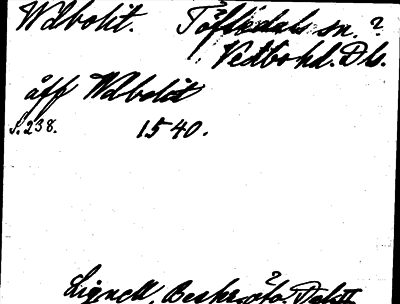 Wdbolit. Töftedals sn.?
Vedbo hd. Dls.
åff Wdbolit
s. 238. 1540.
Lignell, Beskr. öfv. Dal II